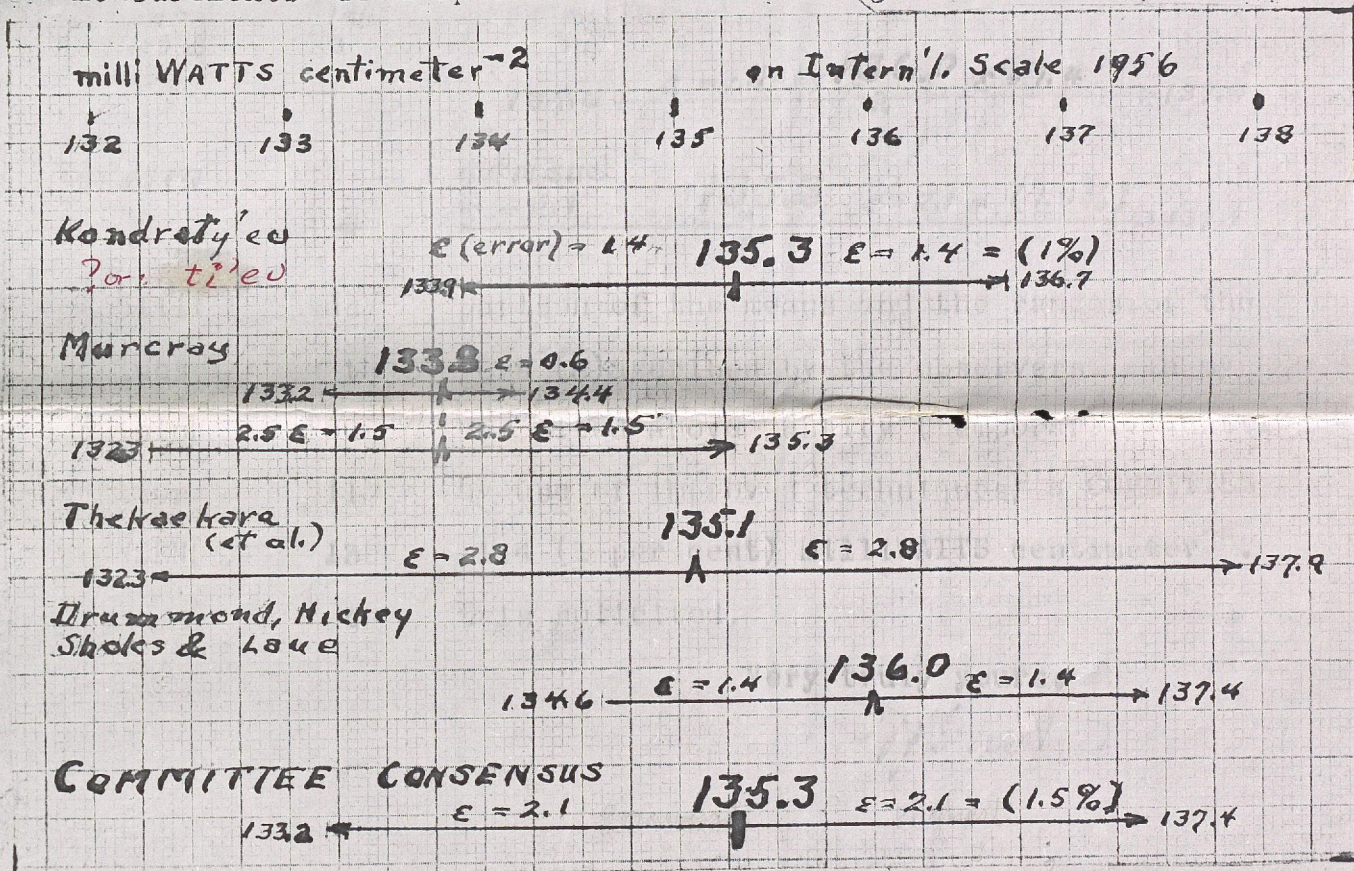 milli WATTS centimeter⁻² on Intern'l. Scale 1956
132 133 134 135 136 137 138
Kondraty'ev
? or ti'ev
ε (error) = 1.4 135.3 ε = 1.4 = (1%)
133.9 136.7
Murcray
133.8 ε = 0.6
133.2 134.4
2.5 ε = 1.5 2.5 ε = 1.5
132.3 135.3
Thekaekara
(et al.)
135.1
ε = 2.8 ε = 2.8
132.3 137.9
Drummond, Hickey
Sholes & Laue
ε = 1.4 136.0 ε = 1.4
134.6 137.4
COMMITTEE CONSENSUS
ε = 2.1 135.3 ε = 2.1 = (1.5%)
133.2 137.4